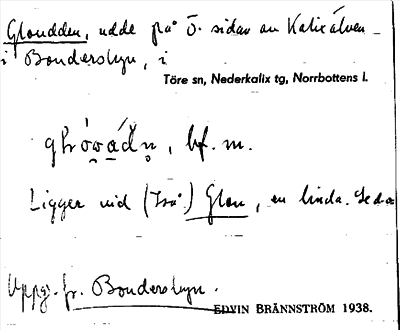 Gloudden, udde på Ö. sidan av Kalixälven
i Bondersbyn, i
Töre sn, Nederkalix tg, Norrbottens l.
bf. m.
Ligger vid (Iså) Glou, en linda. Se d:o
Uppg. fr. Bondersbyn.
EDVIN BRÄNNSTRÖM 1938.